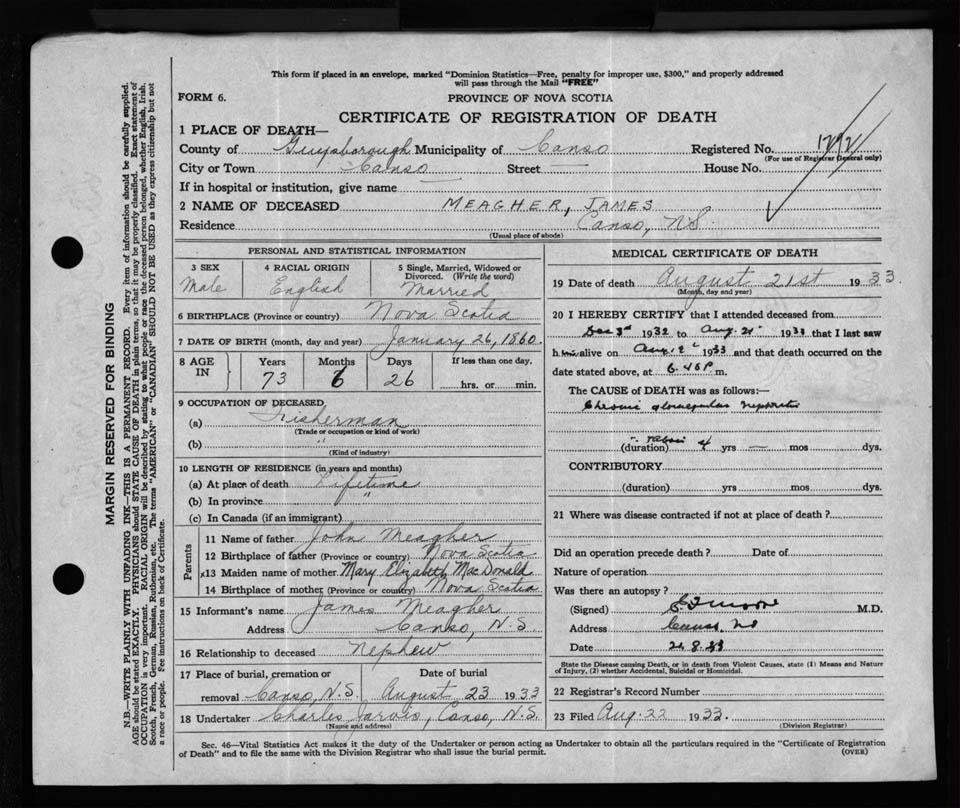 This form if placed in an envelope, marked "Dominion Statistics—Free, penalty for improper use, $300," and properly addressed
will pass through the Mail "FREE"
FORM 6.
PROVINCE OF NOVA SCOTIA
CERTIFICATE OF REGISTRATION OF DEATH
1 PLACE OF DEATH—
County of Guysborough Municipality of Canso Registered No.
(For use of Registrar General only)
City or Town Canso Street — House No.
If in hospital or institution, give name —
2 NAME OF DECEASED MEAGHER, JAMES
Residence Canso, N.S
(Usual place of abode)
PERSONAL AND STATISTICAL INFORMATION
3 SEX 4 RACIAL ORIGIN 5 Single, Married, Widowed or
Divorced. (Write the word)
Male English Married
6 BIRTHPLACE (Province or country) Nova Scotia
7 DATE OF BIRTH (month, day and year) January 26, 1860.
8 AGE IN Years Months Days If less than one day.
73 6 26 hrs. or min.
9 OCCUPATION OF DECEASED,
(a) Fisherman
(Trade or occupation or kind of work)
(b) "
(Kind of industry)
10 LENGTH OF RESIDENCE (in years and months)
(a) At place of death Lifetime
(b) In province "
(c) In Canada (if an immigrant)
Parents
11 Name of father John Meagher
12 Birthplace of father (Province or country) Nova Scotia
x13 Maiden name of mother Mary Elizabeth MacDonald
14 Birthplace of mother (Province or country) Nova Scotia
15 Informant's name James Meagher
Address Canso, N.S.
16 Relationship to deceased Nephew
17 Place of burial, cremation or Date of burial
removal Canso, N.S. August 23 1933
18 Undertaker Charles Jarvis, Canso, N.S.
(Name and address)
MEDICAL CERTIFICATE OF DEATH
19 Date of death August 21st 1933.
(Month, day and year)
20 I HEREBY CERTIFY that I attended deceased from
Dec 3rd 1932 to Aug. 21st 1933 that I last saw
him alive on Aug 1933 and that death occurred on the
date stated above, at 6.40 P. m.
The CAUSE OF DEATH was as follows:—
Chronic glomerular nephritis
(duration) about 4 yrs — mos dys.
CONTRIBUTORY
(duration) yrs mos dys.
21 Where was disease contracted if not at place of death?
Did an operation precede death? Date of
Nature of operation
Was there an autopsy?
(Signed) M.D.
Address Canso, NS
Date 21.8.33
State the Disease causing Death, or in death from Violent Causes, state (1) Means and Nature
of Injury, (2) whether Accidental, Suicidal or Homicidal.
22 Registrar's Record Number
23 Filed Aug. 22 1933.
(Division Registrar)
Sec. 46—Vital Statistics Act makes it the duty of the Undertaker or person acting as Undertaker to obtain all the particulars required in the "Certificate of Registration
of Death" and to file the same with the Division Registrar who shall issue the burial permit. (OVER)
MARGIN RESERVED FOR BINDING
N.B.—WRITE PLAINLY WITH UNFADING INK—THIS IS A PERMANENT RECORD. Every item of information should be carefully supplied.
AGE should be stated EXACTLY. PHYSICIANS should STATE CAUSE OF DEATH in plain terms, so that it may be properly classified. Exact statement of
OCCUPATION is very important. RACIAL ORIGIN will be described by stating to what people or race the deceased person belonged, whether English, Irish,
Scotch, French, German, Russian, Ruthenian, etc. The terms "AMERICAN" or "CANADIAN" SHOULD NOT BE USED as they express citizenship but not
a race or people. Fee instructions on back of Certificate.